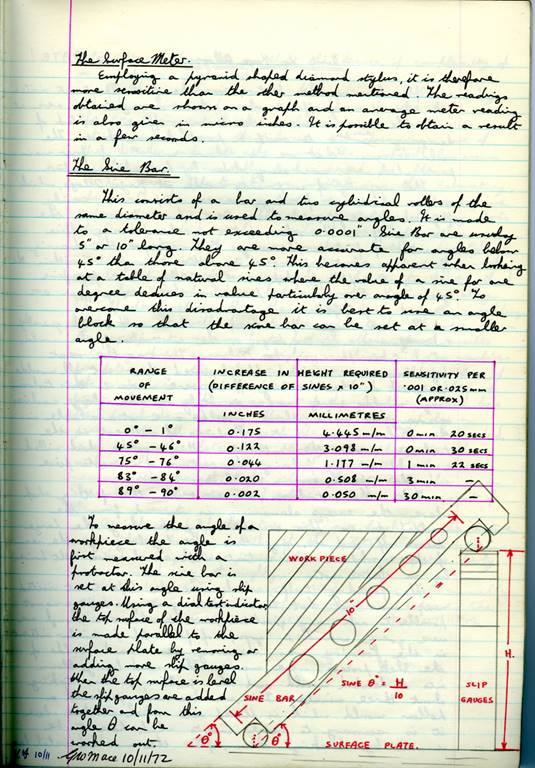 The Surface Meter.
Employing a pyramid shaped diamond stylus, it is therefore
more sensitive than the other method mentioned. The readings
obtained are shown on a graph and an average meter reading
is also given in micro inches. It is possible to obtain a result
in a few seconds.
The Sine Bar.
This consists of a bar and two cylindrical rollers of the
same diameter and is used to measure angles. It is made
to a tolerance not exceeding 0.0001". Sine Bar are usually
5" or 10" long. They are more accurate for angles below
45° than those above 45°. This becomes apparent when looking
at a table of natural sines where the value of a sine for one
degree deduces in value particularly over an angle of 45°. To
overcome this disadvantage it is best to use an angle
block so that the sine bar can be set at a smaller
angle.
RANGE OF MOVEMENT | INCREASE IN HEIGHT REQUIRED (DIFFERENCE OF SINES x 10") | SENSITIVITY PER .001 OR .025 mm (APPROX)
INCHES | MILLIMETRES
0° - 1° | 0.175 | 4.445 m/m | 0 min 20 secs
45° - 46° | 0.122 | 3.098 m/m | 0 min 30 secs
75° - 76° | 0.044 | 1.177 m/m | 1 min 22 secs
83° - 84° | 0.020 | 0.508 m/m | 3 min -
89° - 90° | 0.002 | 0.050 m/m | 30 min -
To measure the angle of a
workpiece the angle is
first measured with a
protractor. The sine bar is
set at this angle using slip
gauges. Using a dial test indicator
the top surface of the workpiece
is made parallel to the
surface plate by removing or
adding more slip gauges.
When the top surface is level
the slip gauges are added
together and from this
angle θ can be
worked out.
WORKPIECE
10"
H.
SINE BAR
SINE θ° = H/10
SLIP
GAUGES
θ°
θ°
SURFACE PLATE.
10/11
10/11/72